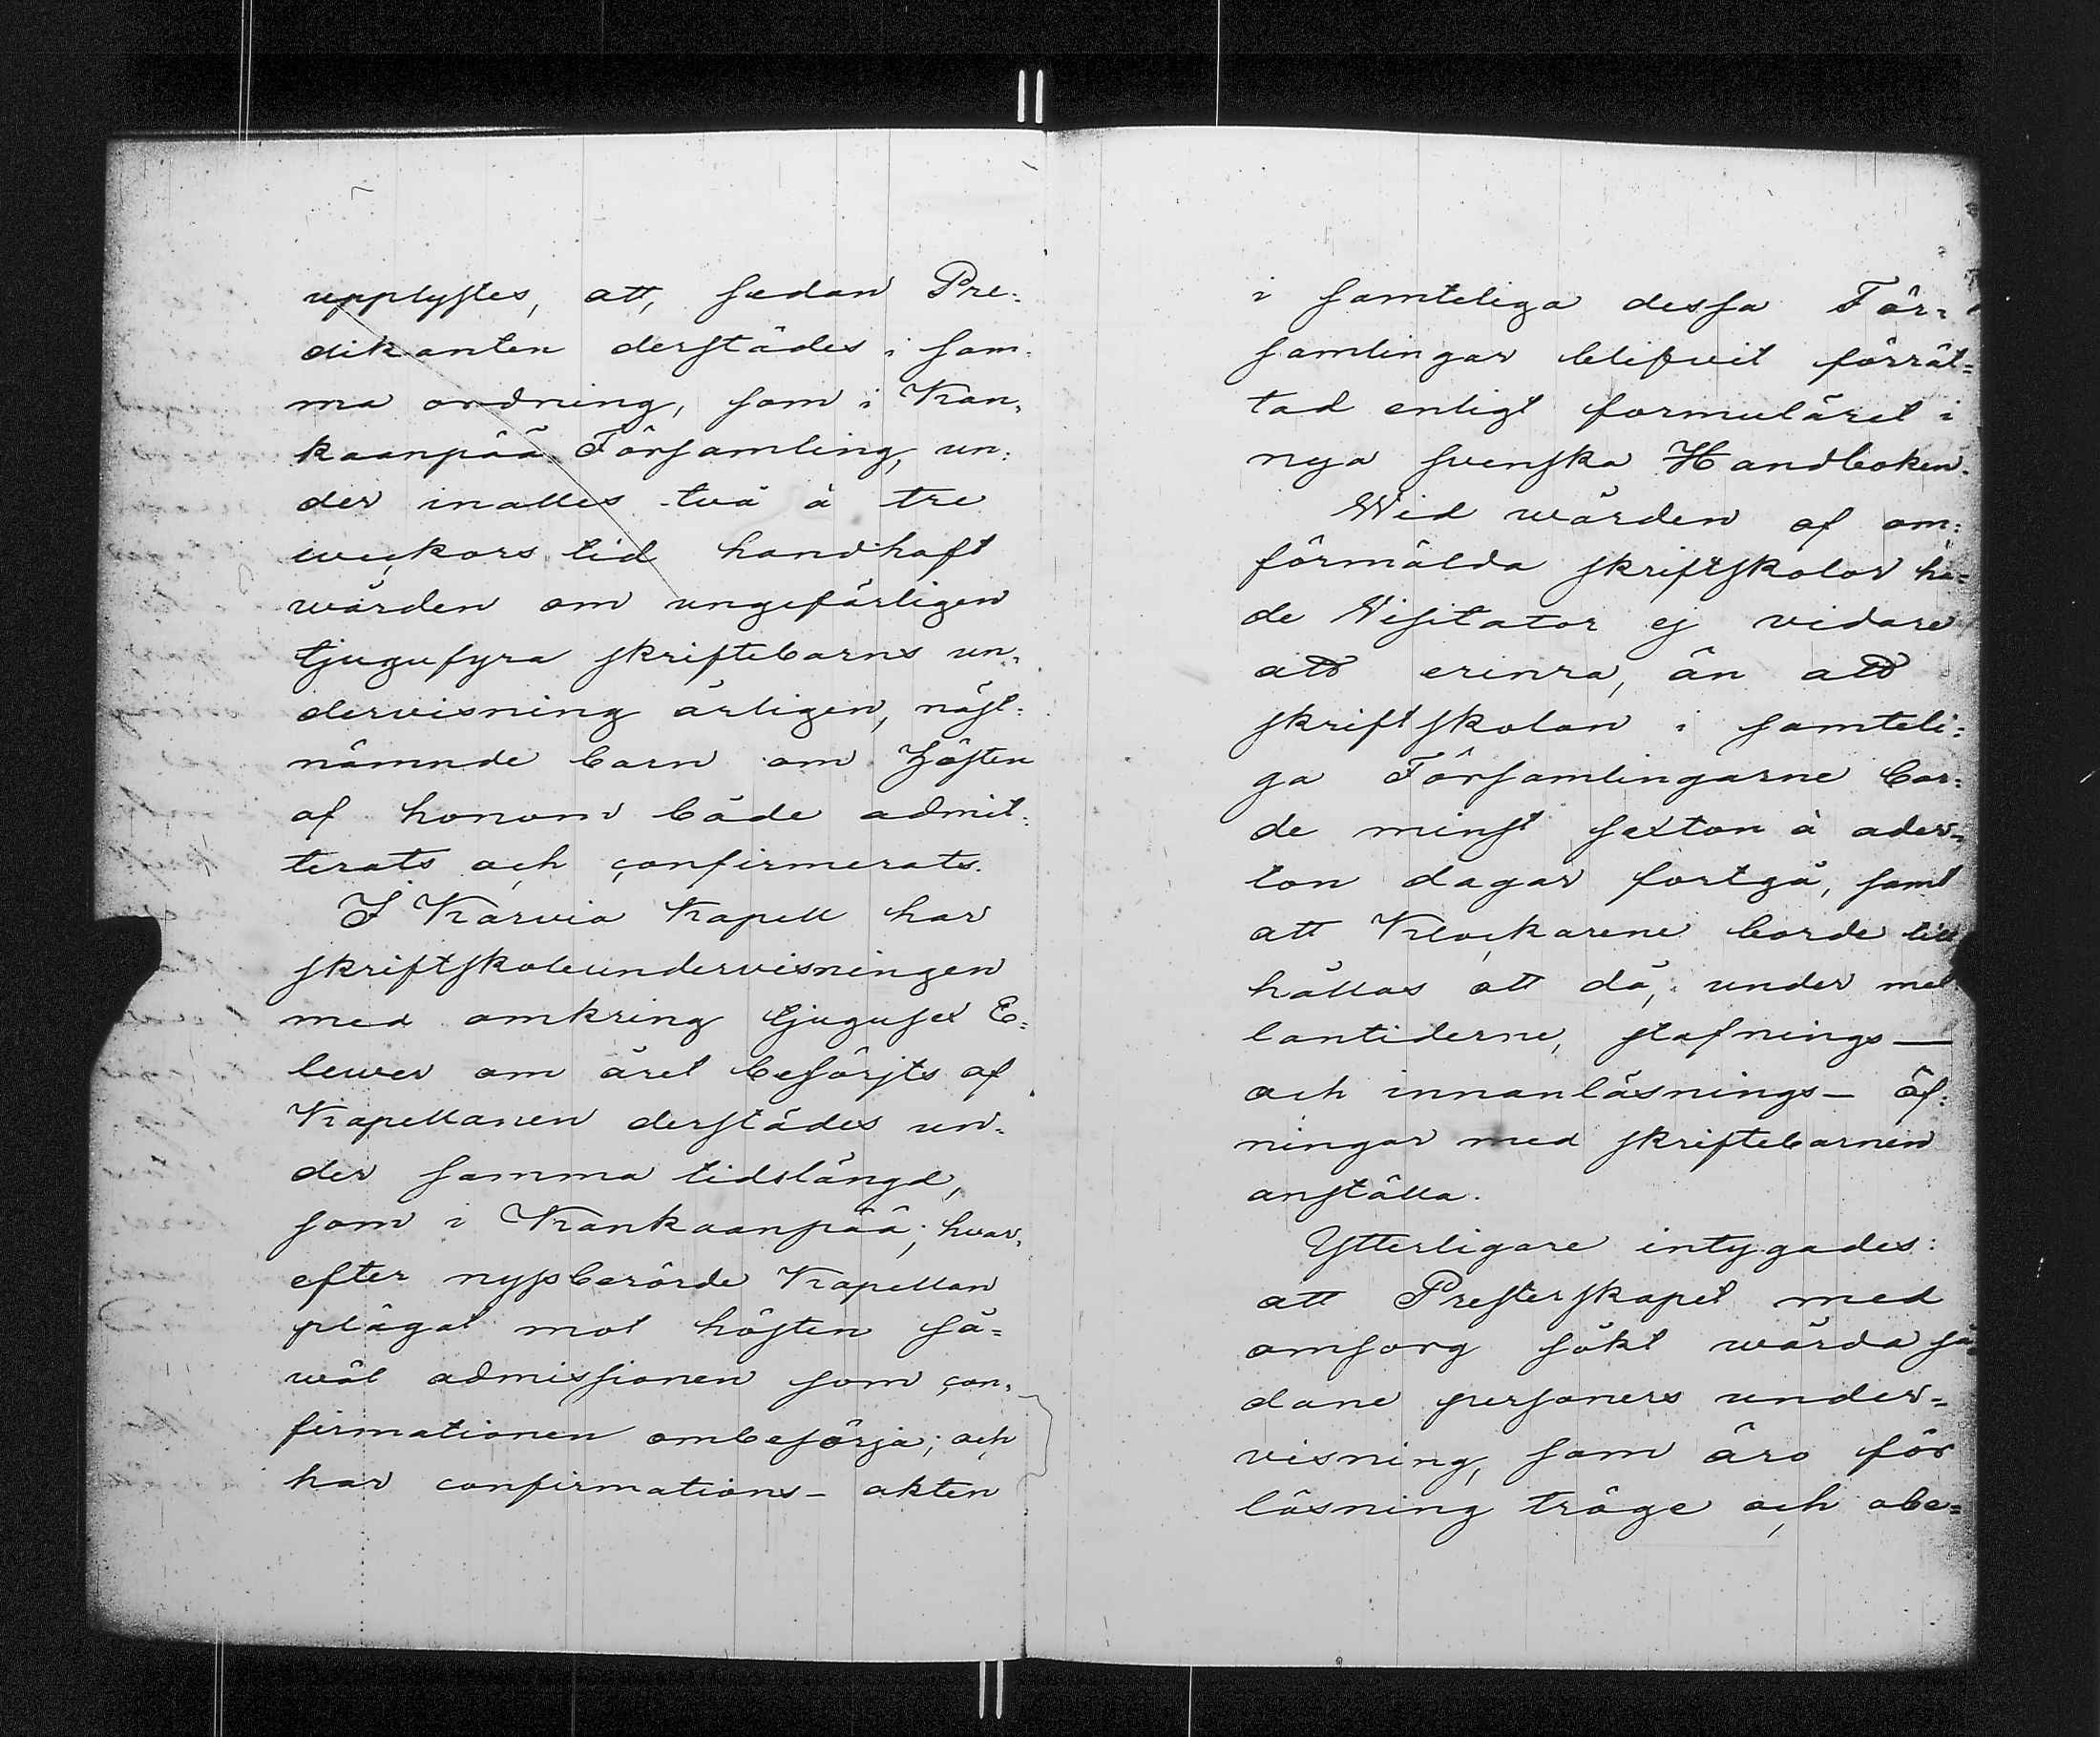 upplystes, att, sedan Pre=
dikanten derstädes i sam=
ma ordning, som i Kan=
kaanpää Församling, un=
der inalles två à tre
weckors tid handhaft
wården om ungefärligen
tjugufyra skriftebarns un=
dervisning årligen, näst=
nämnde barn om Hösten
af honom både admit=
terats och confirmerats.
I Karvia Kapell har
skriftskoleundervisningen
med omkring tjugusex E=
lewer om året besörjts af
Kapellanen derstädes un=
der samma tidslängd,
som i Kankaanpää; hvar=
efter nyssberörde Kapellan
plägat mot hösten så=
wäl admissionen som con=
firmationen ombesörja; och
har confirmations- akten
i samteliga dessa För=
samlingar blifvit förrät=
tad enligt formuläret i
nya svenska Handboken.
Wid wården af om=
förmälda skriftskolor ha=
de Visitator ej vidare
att erinra, än att
skriftskolan i samteli=
ga Församlingarne bor=
de minst sexton à ader=
ton dagar fortgå, samt
att Klockarene borde till
hållas att då, under mel
lantiderne, stafnings—
och innanläsnings— öf=
ningar med skriftebarnen
anställa.
Ytterligare intygades:
att Presterskapet med
omsorg sökt wårda så
dane personers under=
visning, som äro för
läsning tröge och obe=